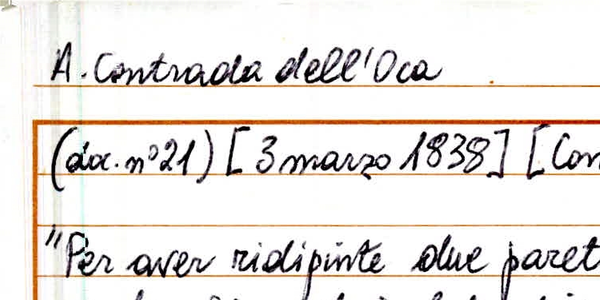 A. Contrada dell'Oca
(doc. n° 21) [3 marzo 1838] [Con
"Per aver ridipinte due paret